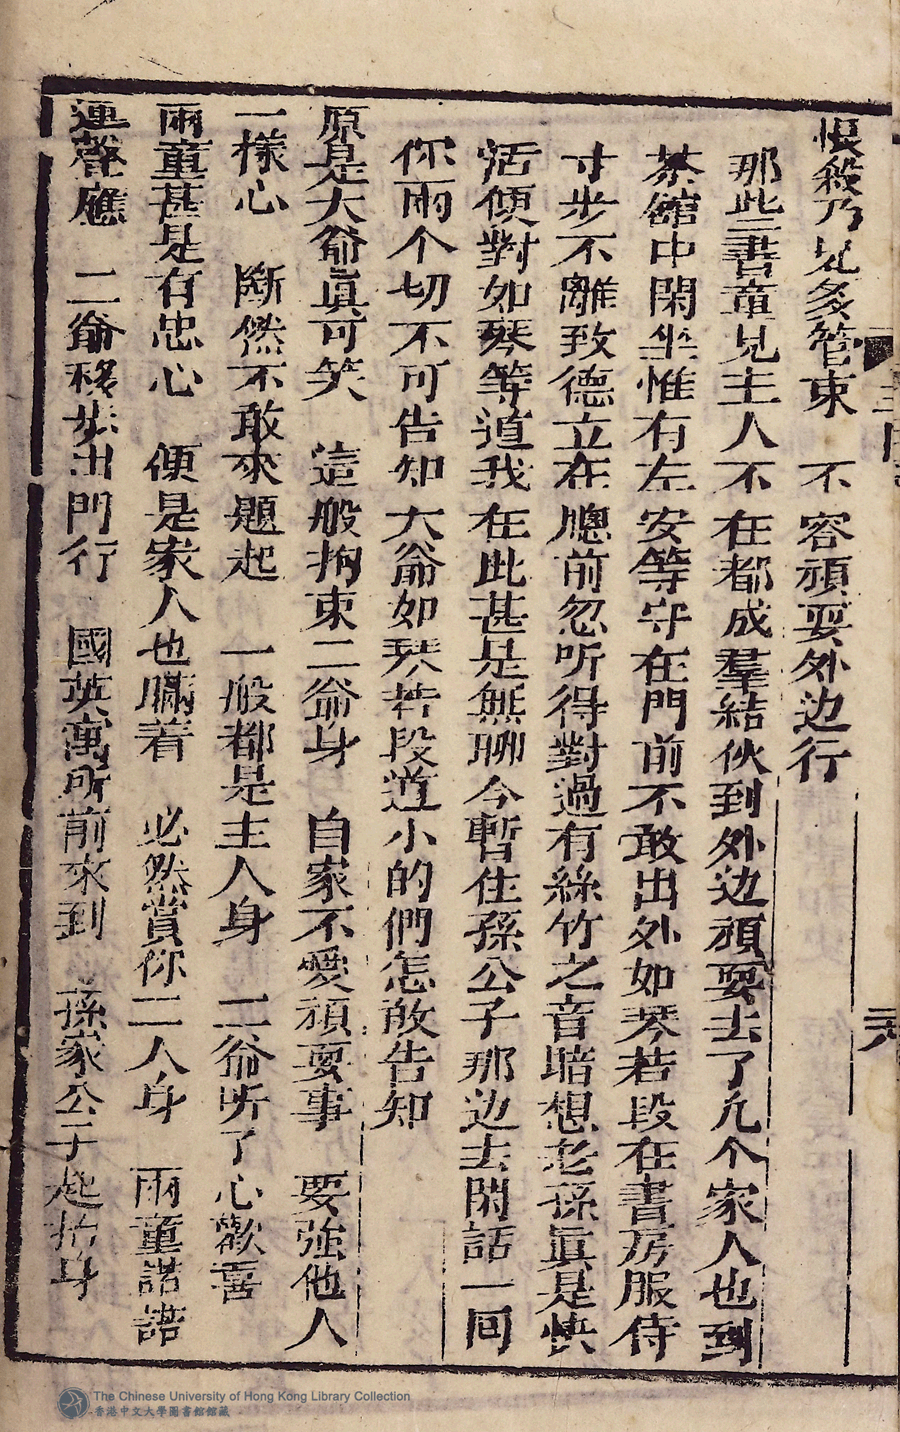 恨殺乃兄多管束　不容頑耍外边行
那些書童見主人不在都成羣結伙到外边頑耍去了几个家人也到
茶館中閑坐惟有左安等守在門前不敢出外如琴若段在書房服侍
寸步不離致德立在牕前忽听得對過有絲竹之音暗想老孫眞是快
活便對如琴等道我在此甚是無聊今暫住孫公子那边去閑話一囘
你兩个切不可告知大爺如琴若段道小的們怎敢告知
原是大爺眞可笑　這般拘束二爺身　自家不愛頑耍事　要強他人
一樣心　斷然不敢來題起　一般都是主人身　二爺听了心歡喜
兩童甚是有忠心　便是家人也瞞着　必然賞你二人身　兩童諾諾
連聲應　二爺移步出門行　國英寓所前來到　孫家公子起抬身
The Chinese University of Hong Kong Library Collection
香港中文大學圖書館館藏